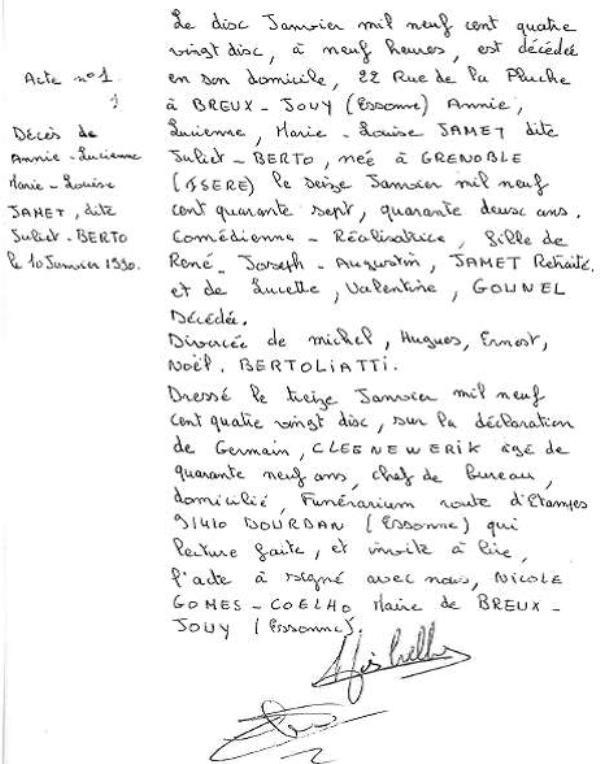 Acte n°1
Décès de
Annie-Lucienne
Marie-Louise
JAMET, dite
Juliet-BERTO
le 10 Janvier 1990.
Le disc Janvier mil neuf cent quatre
vingt disc, à neuf heures, est décédée
en son domicile, 22 Rue de la Pluche
à BREUX-JOUY (Essonne) Annie,
Lucienne, Marie-Louise JAMET dite
Juliet-BERTO, née à GRENOBLE
(ISERE) le seize Janvier mil neuf
cent quarante sept, quarante deusc ans.
Comédienne - Réalisatrice, fille de
René-Joseph-Augustin, JAMET Retraité.
et de Lucette, Valentine, GOUNEL
Décédée.
Divorcée de michel, Hugues, Ernest,
Noël. BERTOLIATTI.
Dressé le treize Janvier mil neuf
cent quatre vingt disc, sur la déclaration
de Germain, CLEENEWERIK âgé de
quarante neuf ans, chef de bureau,
domicilié, Funérarium route d'Etampes
91410 DOURDAN (Essonne) qui
lecture faite, et invité à lire,
l'acte à signé avec nous, NICOLE
GOMES-COELHO Maire de BREUX-
JOUY (Essonne).